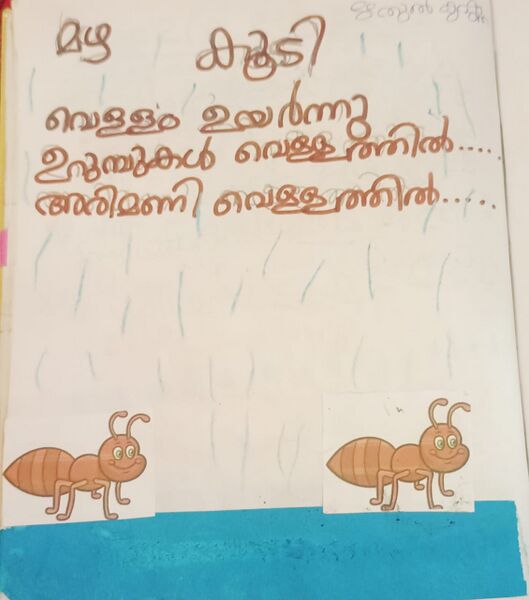 മഴ കൂടി
വെള്ളം ഉയർന്നു
ഉറുമ്പുകൾ വെള്ളത്തിൽ.....
അരിമണി വെള്ളത്തിൽ.....